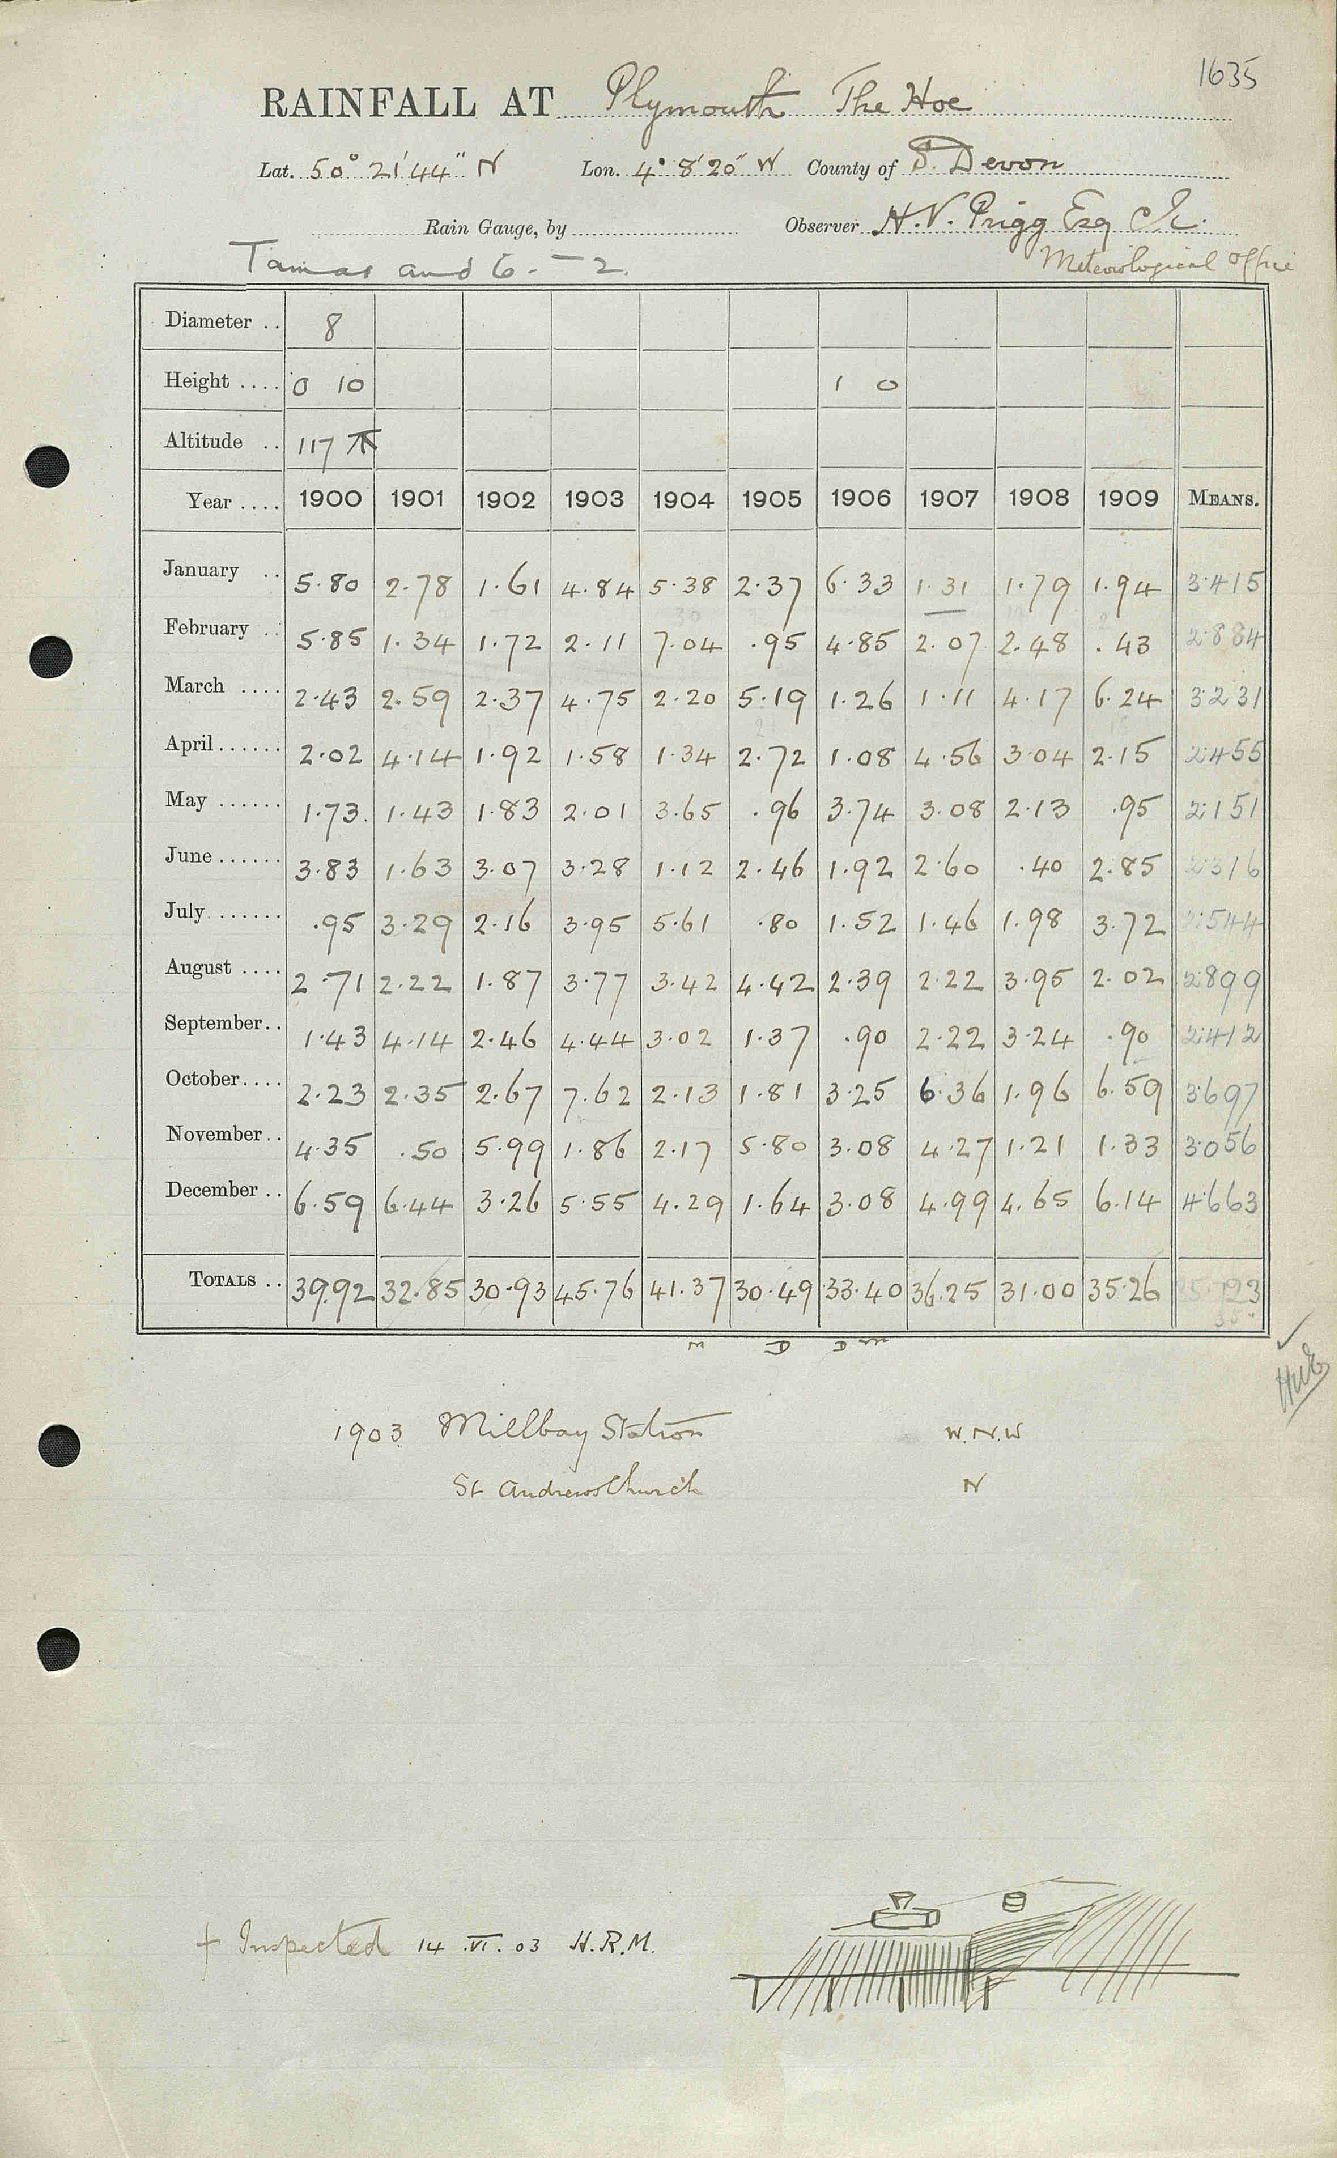 1635
RAINFALL AT Plymouth The Hoe
Lat. 50° 21' 44" N Lon. 4° 8' 20" W County of S. Devon
Rain Gauge, by Observer H.V. Prigg Esq
Tamar and 6.-2. Meteorological Office
Diameter .. 8
Height .... 0 10 1 0
Altitude .. 117
Year .... 1900 1901 1902 1903 1904 1905 1906 1907 1908 1909 MEANS.
January .. 5.80 2.78 1.61 4.84 5.38 2.37 6.33 1.31 1.79 1.94 3.415
February .. 5.85 1.34 1.72 2.11 7.04 .95 4.85 2.07 2.48 .43 2.884
March .... 2.43 2.59 2.37 4.75 2.20 5.19 1.26 1.11 4.17 6.24 3.231
April ...... 2.02 4.14 1.92 1.58 1.34 2.72 1.08 4.56 3.04 2.15 2.455
May ...... 1.73 1.43 1.83 2.01 3.65 .96 3.74 3.08 2.13 .95 2.151
June ...... 3.83 1.63 3.07 3.28 1.12 2.46 1.92 2.60 .40 2.85 2.316
July ....... .95 3.29 2.16 3.95 5.61 .80 1.52 1.46 1.98 3.72 2.544
August .... 2.71 2.22 1.87 3.77 3.42 4.42 2.39 2.22 3.95 2.02 2.899
September.. 1.43 4.14 2.46 4.44 3.02 1.37 .90 2.22 3.24 .90 2.412
October.... 2.23 2.35 2.67 7.62 2.13 1.81 3.25 6.36 1.96 6.59 3.697
November.. 4.35 .50 5.99 1.86 2.17 5.80 3.08 4.27 1.21 1.33 3.056
December .. 6.59 6.44 3.26 5.55 4.29 1.64 3.08 4.99 4.65 6.14 4.663
TOTALS .. 39.92 32.85 30.93 45.76 41.37 30.49 33.40 36.25 31.00 35.26 35.723
m D D m
1903 Millbay Station W.N.W
St Andrews Church N
† Inspected 14.VI.03 H.R.M.